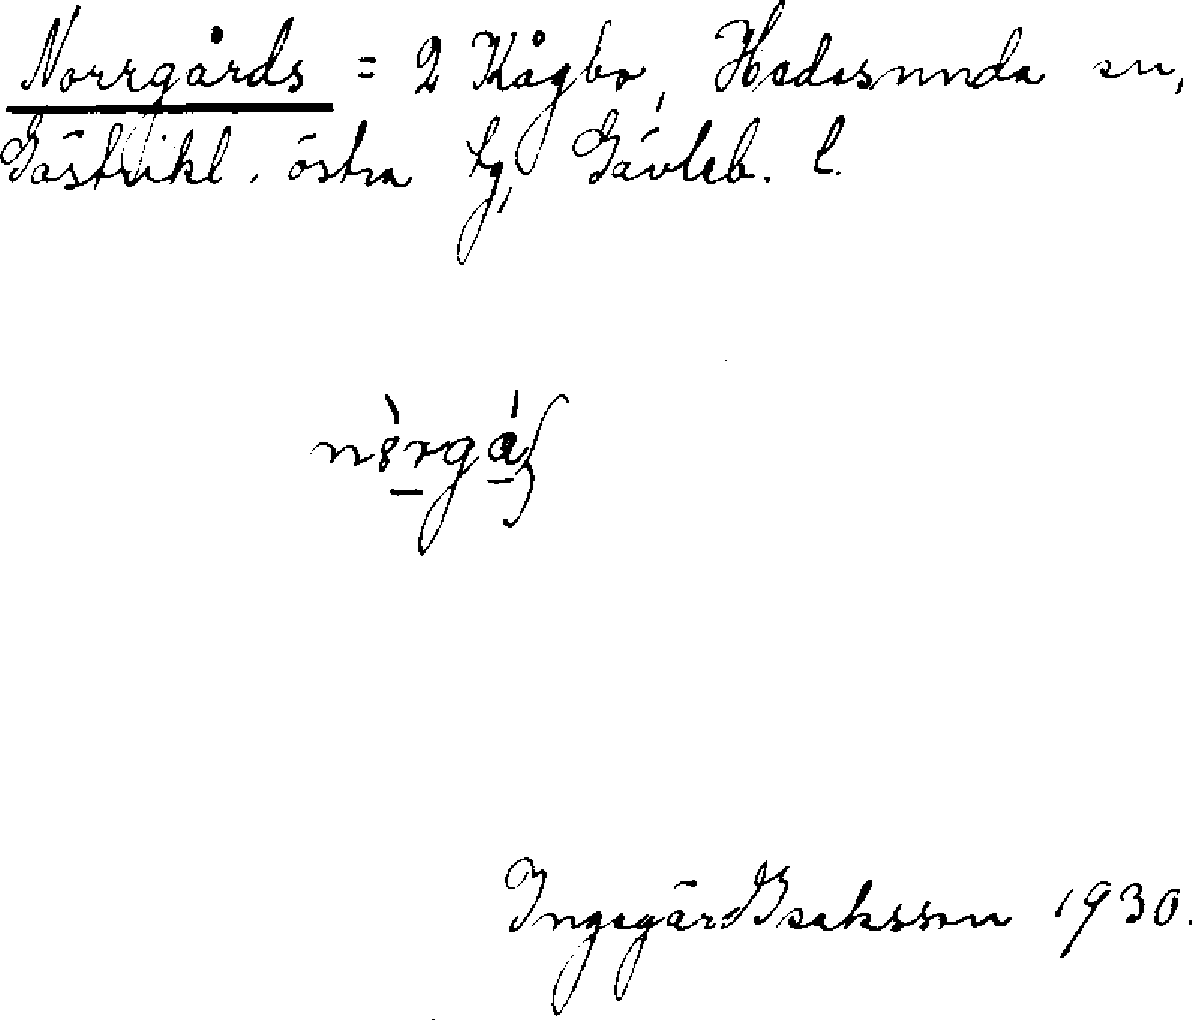 Norrgårds = 2 Kågbo, Hedesunda sn,
Gästrikl. östra tg, Gävleb. l.
Ingegärd Isaksson 1930.